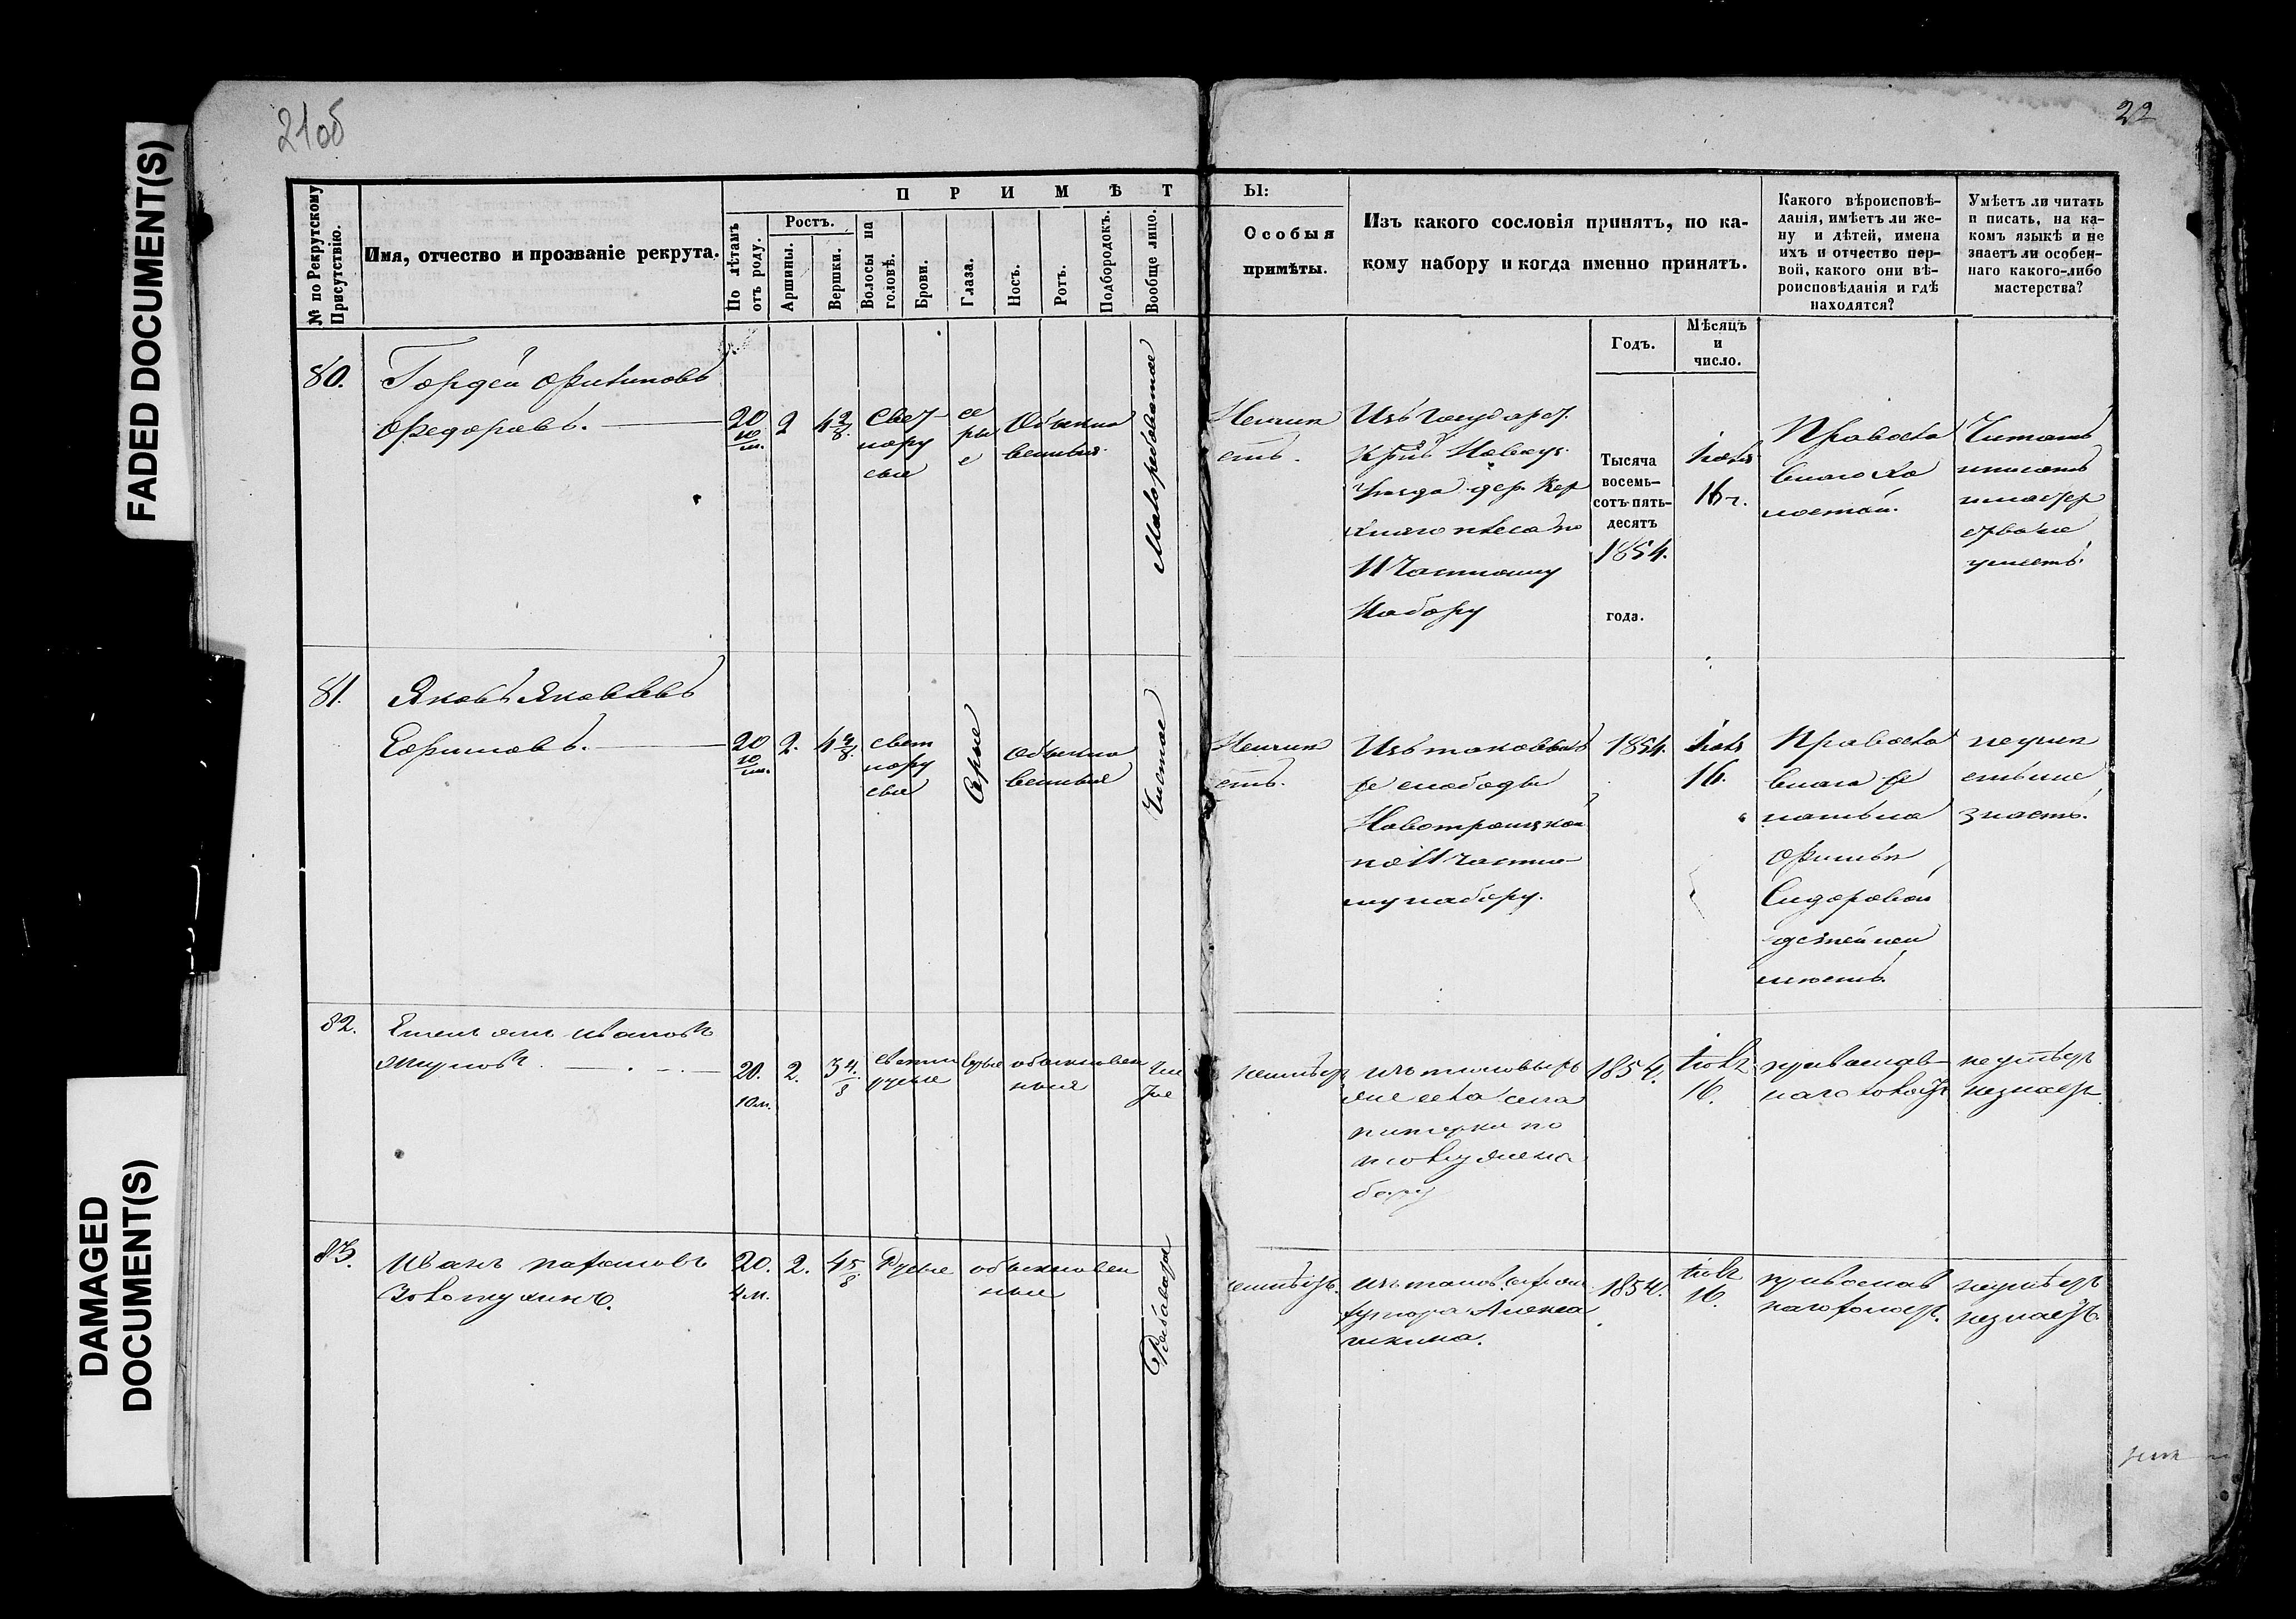 FADED DOCUMENT(S)
DAMAGED
DOCUMENT(S)
21об
22
№ по Рекрутскому
Присутствію.
Имя, отчество и прозваніе рекрута.
П Р И М Ѣ Т
По лѣтамъ
отъ роду.
Ростъ.
Аршины.
Вершки.
Волосы на
головѣ.
Брови.
Глаза.
Носъ.
Ротъ.
Подбородокъ.
Вообще лицо.
Ы:
Особыя
примѣты.
Изъ какого сословія принятъ, по ка-
кому набору и когда именно принятъ.
Годъ.
Мѣсяцъ
и
число.
Какого вѣроисповѣ-
данія, имѣетъ ли же-
ну и дѣтей, имена
ихъ и отчество пер-
вой, какого они вѣ-
роисповѣданія и гдѣ
находятся?
Умѣетъ ли читать
и писать, на ка-
комъ языкѣ и не
знаетъ ли особен-
наго какого-либо
мастерства?
80.
Гордей Филиповъ
Федоровъ.
20
10
м.
2
4 2/8.
свет
лору
сые
се
ры
е
Обыкно
венные
Малорябоватое
Неиме
етъ.
Изъ Государст.
Уезда дер. Вер
хняго плеса по
11 Частному
Набору
Тысяча
восемь-
сотъ пять-
десятъ
1854.
года.
Іюля
16 ч.
Правосла
внаго хо
лостой.
Читать
писать
имастер
ства не
умеетъ.
81.
Яковъ Яковлевъ
Ефимовъ.
20
10
м.
2.
4 4/8.
свет
лору
сые
Серые
Обыкно
венные
Чистое
Неиме
етъ.
Изъ таковыхъ
же слободы
Новотроицкой
по 11 частно
му набору.
1854.
Іюля
16.
Правосла
внаго же
натъ на
Фимьи
Сидоровой
детей неи
меетъ.
неуме
етъ ине
знаетъ.
82.
Емельян Иванов
20.
10 м.
2.
3 4/8
светло
русые
серые
обыкновен
ные
чис
тое
неимеетъ
изъ таковыхъ
же села
питерки по
набору
1854.
Іюля
16.
православ-
наго холост
неумеетъ
незнаетъ
83.
Иванъ
20.
4 м.
2.
4 5/8
Русые
обыкновен
ные
Рябоватое
неимѣетъ.
изъ таков.
хутора
1854.
Іюля
16.
православ
наго холост.
неумѣетъ
незнаетъ.